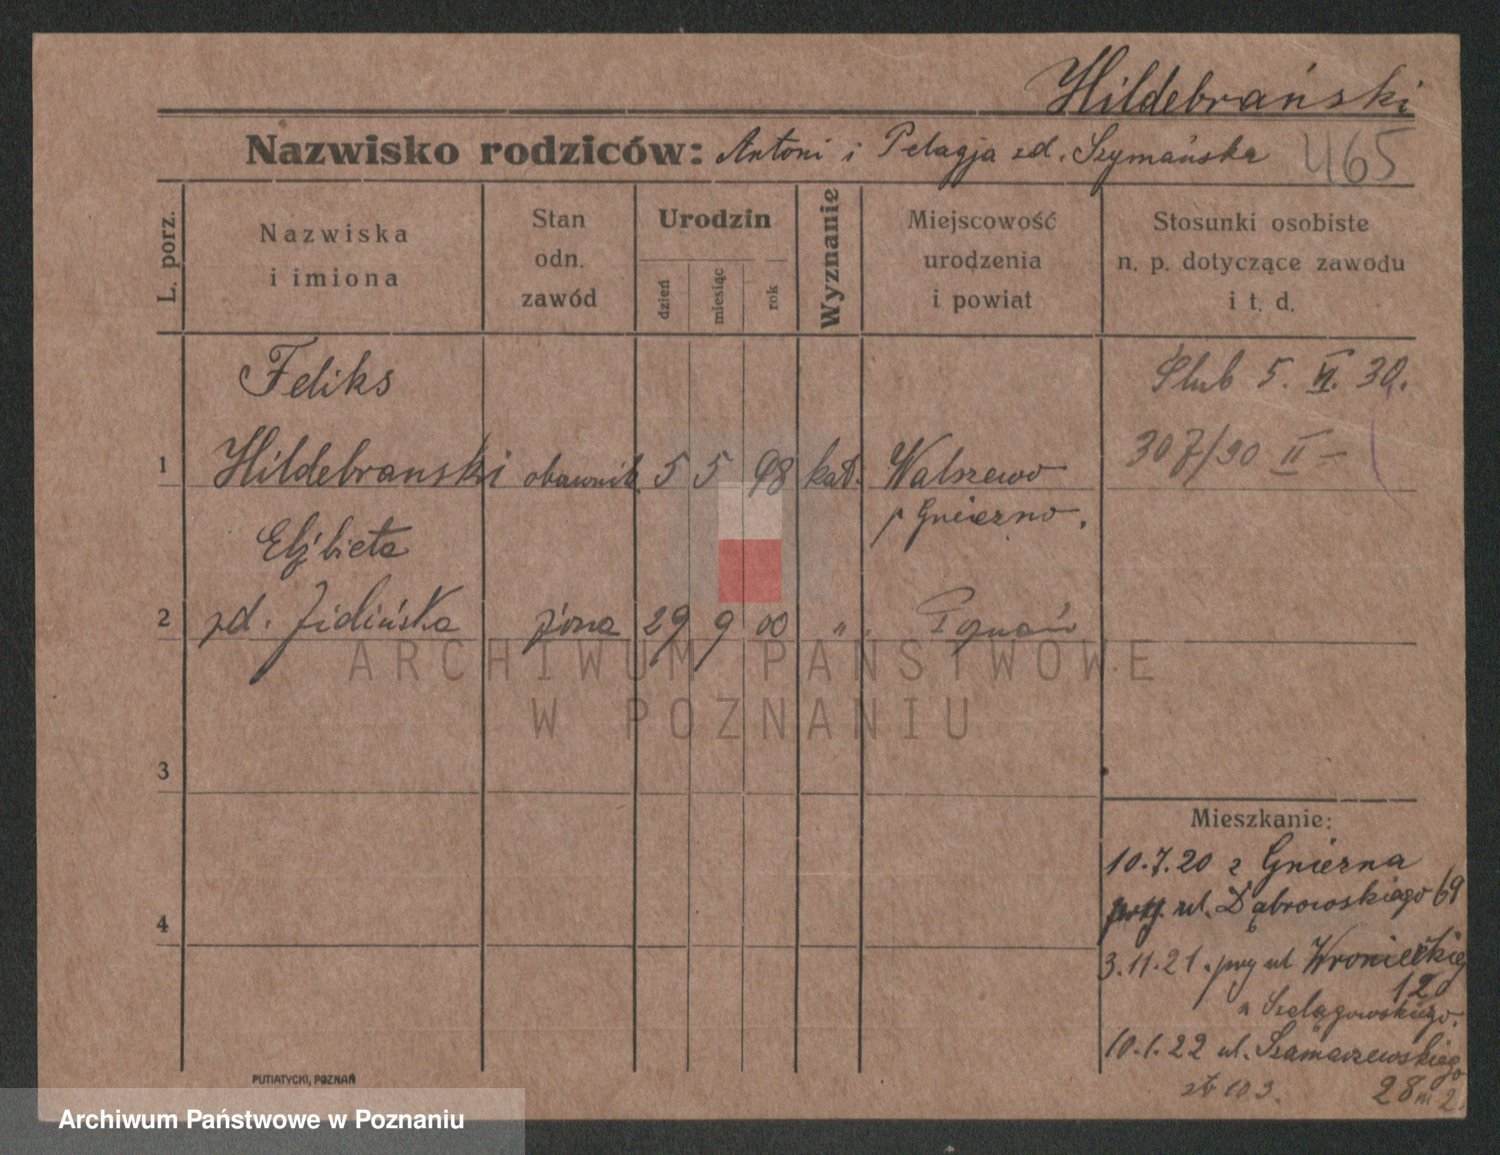 Hildebrański
Nazwisko rodziców: Antoni i Pelagja zd. Szymańska 465
L. porz.
Nazwiska
i imiona
Stan
odn.
zawód
Urodzin
dzień
miesiąc
rok
Wyznanie
Miejscowość
urodzenia
i powiat
Stosunki osobiste
n. p. dotyczące zawodu
i t. d.
Feliks
Ślub 5. VI. 30.
1 Hildebranski 5 5 98 kat.
307/30 II
p Gniezno.
Elżbieta
2 zd. żona 29 9 00 " Poznań
ARCHIWUM PAŃSTWOWE
W POZNANIU
3
Mieszkanie:
10.7.20 z Gniezna
ul. Dąbrowskiego 69
4
3.11.21. przy ul Wronieckiej
12
u Szelągowskiego.
10.1.22 ul. Szamarzewskiego
28 m 2.
PUTIATYCKI, POZNAŃ
Archiwum Państwowe w Poznaniu